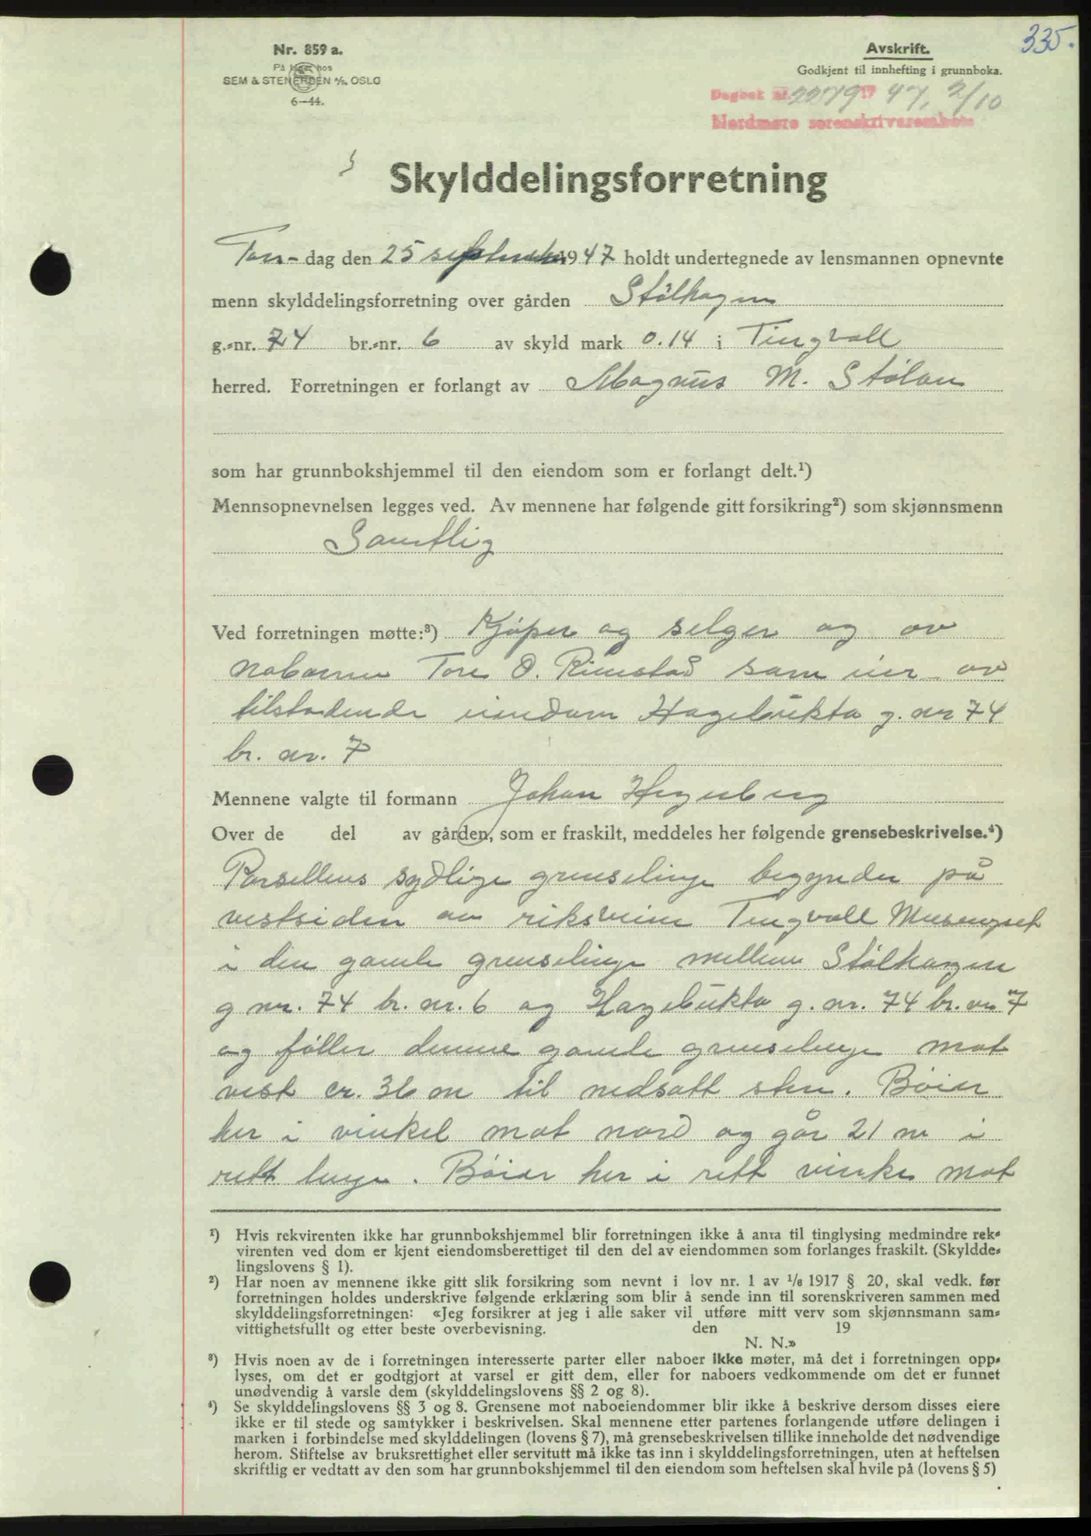 335.
Nr. 859 a.
På lager hos
SEM & STENERSEN A/S, OSLO
6-44.
Avskrift.
Godkjent til innhefting i grunnboka.
Dagbok nr. 2279 1947, 2/10
Nordmøre sorenskriverembete
Skylddelingsforretning
Tors-dag den 25 september 1947 holdt undertegnede av lensmannen opnevnte
menn skylddelingsforretning over gården Stølhagen
g.-nr. 74 br.-nr. 6 av skyld mark 0.14 i Tingvoll
herred. Forretningen er forlangt av Magnus M. Stølan
som har grunnbokshjemmel til den eiendom som er forlangt delt.¹)
Mennsopnevnelsen legges ved. Av mennene har følgende gitt forsikring²) som skjønnsmenn
Samtlig
Ved forretningen møtte:³) Kjøper og selger og av
naboerne Tore O. Rimstad som eier av
tilstødende eiendom Hagebukta g. nr 74
br. nr. 7
Mennene valgte til formann Johan Hegerberg
Over de del av gården, som er fraskilt, meddeles her følgende grensebeskrivelse.⁴)
Parsellens sydlige grenselinje begynder på
vestsiden av riksveien Tingvoll Meisingset
i den gamle grenselinje mellem Stølhagen
g nr. 74 br. nr. 6 og Hagebukta g. nr. 74 br. nr 7
og føller denne gamle grenselinje mot
vest cr. 36 m til nedsatt sten. Bøier
her i vinkel mot nord og går 21 m i
rett linje. Bøier her i rett vinke mot
¹) Hvis rekvirenten ikke har grunnbokshjemmel blir forretningen ikke å anta til tinglysing medmindre rek-
virenten ved dom er kjent eiendomsberettiget til den del av eiendommen som forlanges fraskilt. (Skyldde-
lingslovens § 1).
²) Har noen av mennene ikke gitt slik forsikring som nevnt i lov nr. 1 av 1/6 1917 § 20, skal vedk. før
forretningen holdes underskrive følgende erklæring som blir å sende inn til sorenskriveren sammen med
skylddelingsforretningen: «Jeg forsikrer at jeg i alle saker vil utføre mitt verv som skjønnsmann sam-
vittighetsfullt og etter beste overbevisning. den 19
N. N.»
³) Hvis noen av de i forretningen interesserte parter eller naboer ikke møter, må det i forretningen opp-
lyses, om det er godtgjort at varsel er gitt dem, eller for naboers vedkommende om det er funnet
unødvendig å varsle dem (skylddelingslovens §§ 2 og 8).
⁴) Se skylddelingslovens §§ 3 og 8. Grensene mot naboeiendommer blir ikke å beskrive dersom disses eiere
ikke er til stede og samtykker i beskrivelsen. Skal mennene etter partenes forlangende utføre delingen i
marken i forbindelse med skylddelingen (lovens § 7), må grensebeskrivelsen tillike inneholde det nødvendige
herom. Stiftelse av bruksrettighet eller servitutt må ikke tas inn i skylddelingsforretningen, uten at heftelsen
skriftlig er vedtatt av den som har grunnbokshjemmel til den eiendom som heftelsen skal hvile på (lovens § 5)